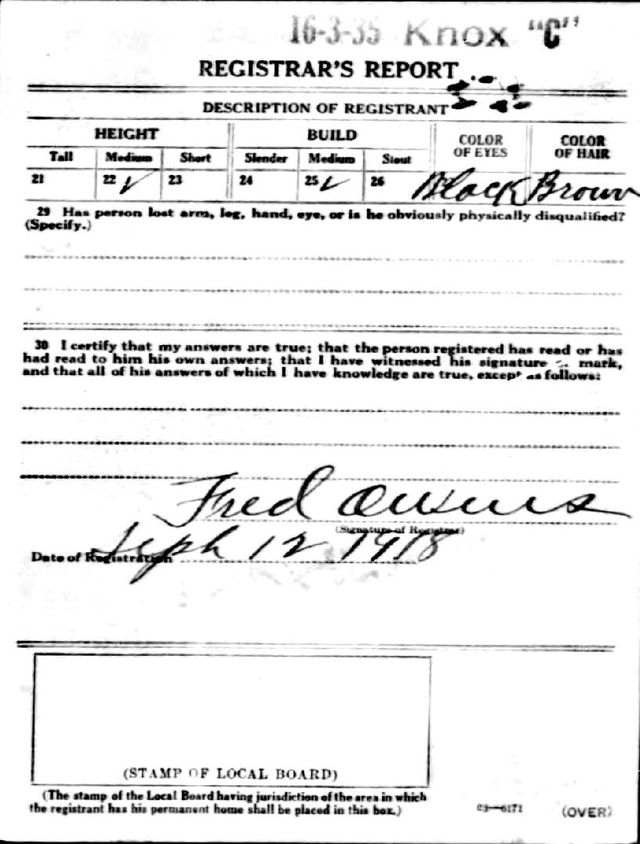 16-3-35 Knox "C"
REGISTRAR'S REPORT
DESCRIPTION OF REGISTRANT
HEIGHT BUILD COLOR OF EYES COLOR OF HAIR
Tall Medium Short Slender Medium Stout
21 22 ✓ 23 24 25 ✓ 26 Black Brown
29 Has person lost arm, leg, hand, eye, or is he obviously physically disqualified?
(Specify.)
30 I certify that my answers are true; that the person registered has read or has
had read to him his own answers; that I have witnessed his signature or mark,
and that all of his answers of which I have knowledge are true, except as follows:
Fred Owens
(Signature of Registrar)
Date of Registration Seph 12 1918
(STAMP OF LOCAL BOARD)
(The stamp of the Local Board having jurisdiction of the area in which
the registrant has his permanent home shall be placed in this box.)
03—6171 (OVER)